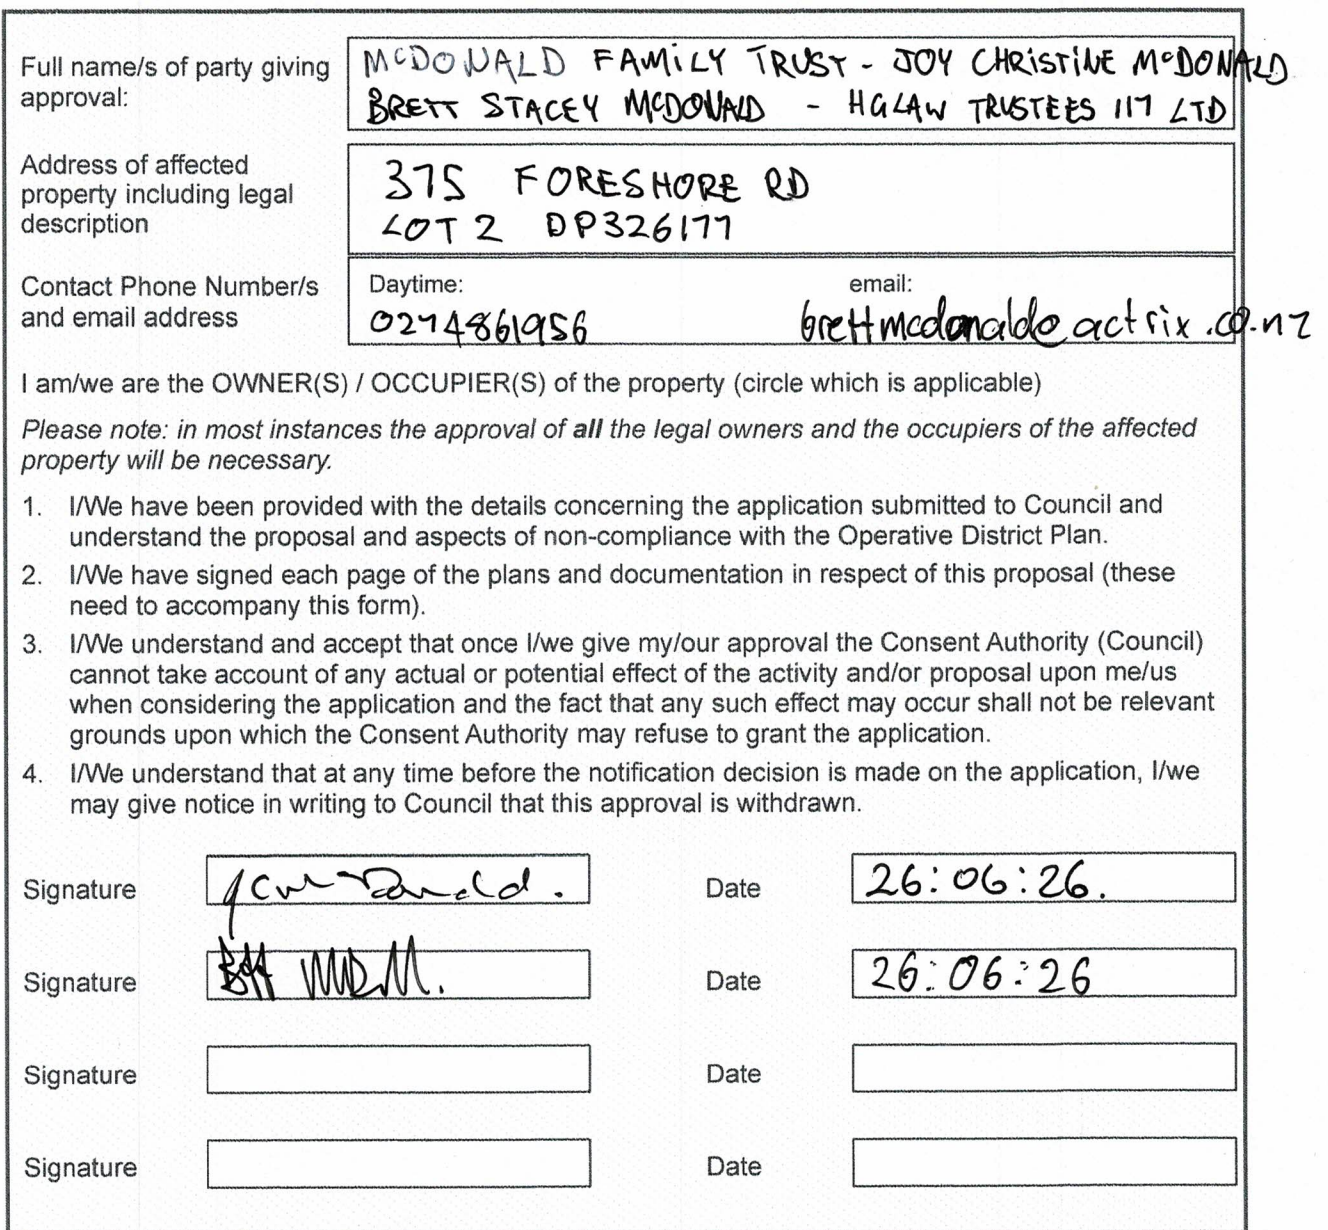 Full name/s of party giving approval:
McDONALD FAMILY TRUST - JOY CHRISTINE McDONALD
BRETT STACEY McDONALD - HGLAW TRUSTEES 117 LTD
Address of affected property including legal description
375 FORESHORE RD
LOT 2 DP326177
Contact Phone Number/s and email address
Daytime:
0274861956
email:
brettmcdonald@actrix.co.nz
I am/we are the OWNER(S) / OCCUPIER(S) of the property (circle which is applicable)
Please note: in most instances the approval of all the legal owners and the occupiers of the affected
property will be necessary.
1. I/We have been provided with the details concerning the application submitted to Council and
understand the proposal and aspects of non-compliance with the Operative District Plan.
2. I/We have signed each page of the plans and documentation in respect of this proposal (these
need to accompany this form).
3. I/We understand and accept that once I/we give my/our approval the Consent Authority (Council)
cannot take account of any actual or potential effect of the activity and/or proposal upon me/us
when considering the application and the fact that any such effect may occur shall not be relevant
grounds upon which the Consent Authority may refuse to grant the application.
4. I/We understand that at any time before the notification decision is made on the application, I/we
may give notice in writing to Council that this approval is withdrawn.
Signature Date 26:06:26.
Signature Date 26:06:26
Signature Date
Signature Date